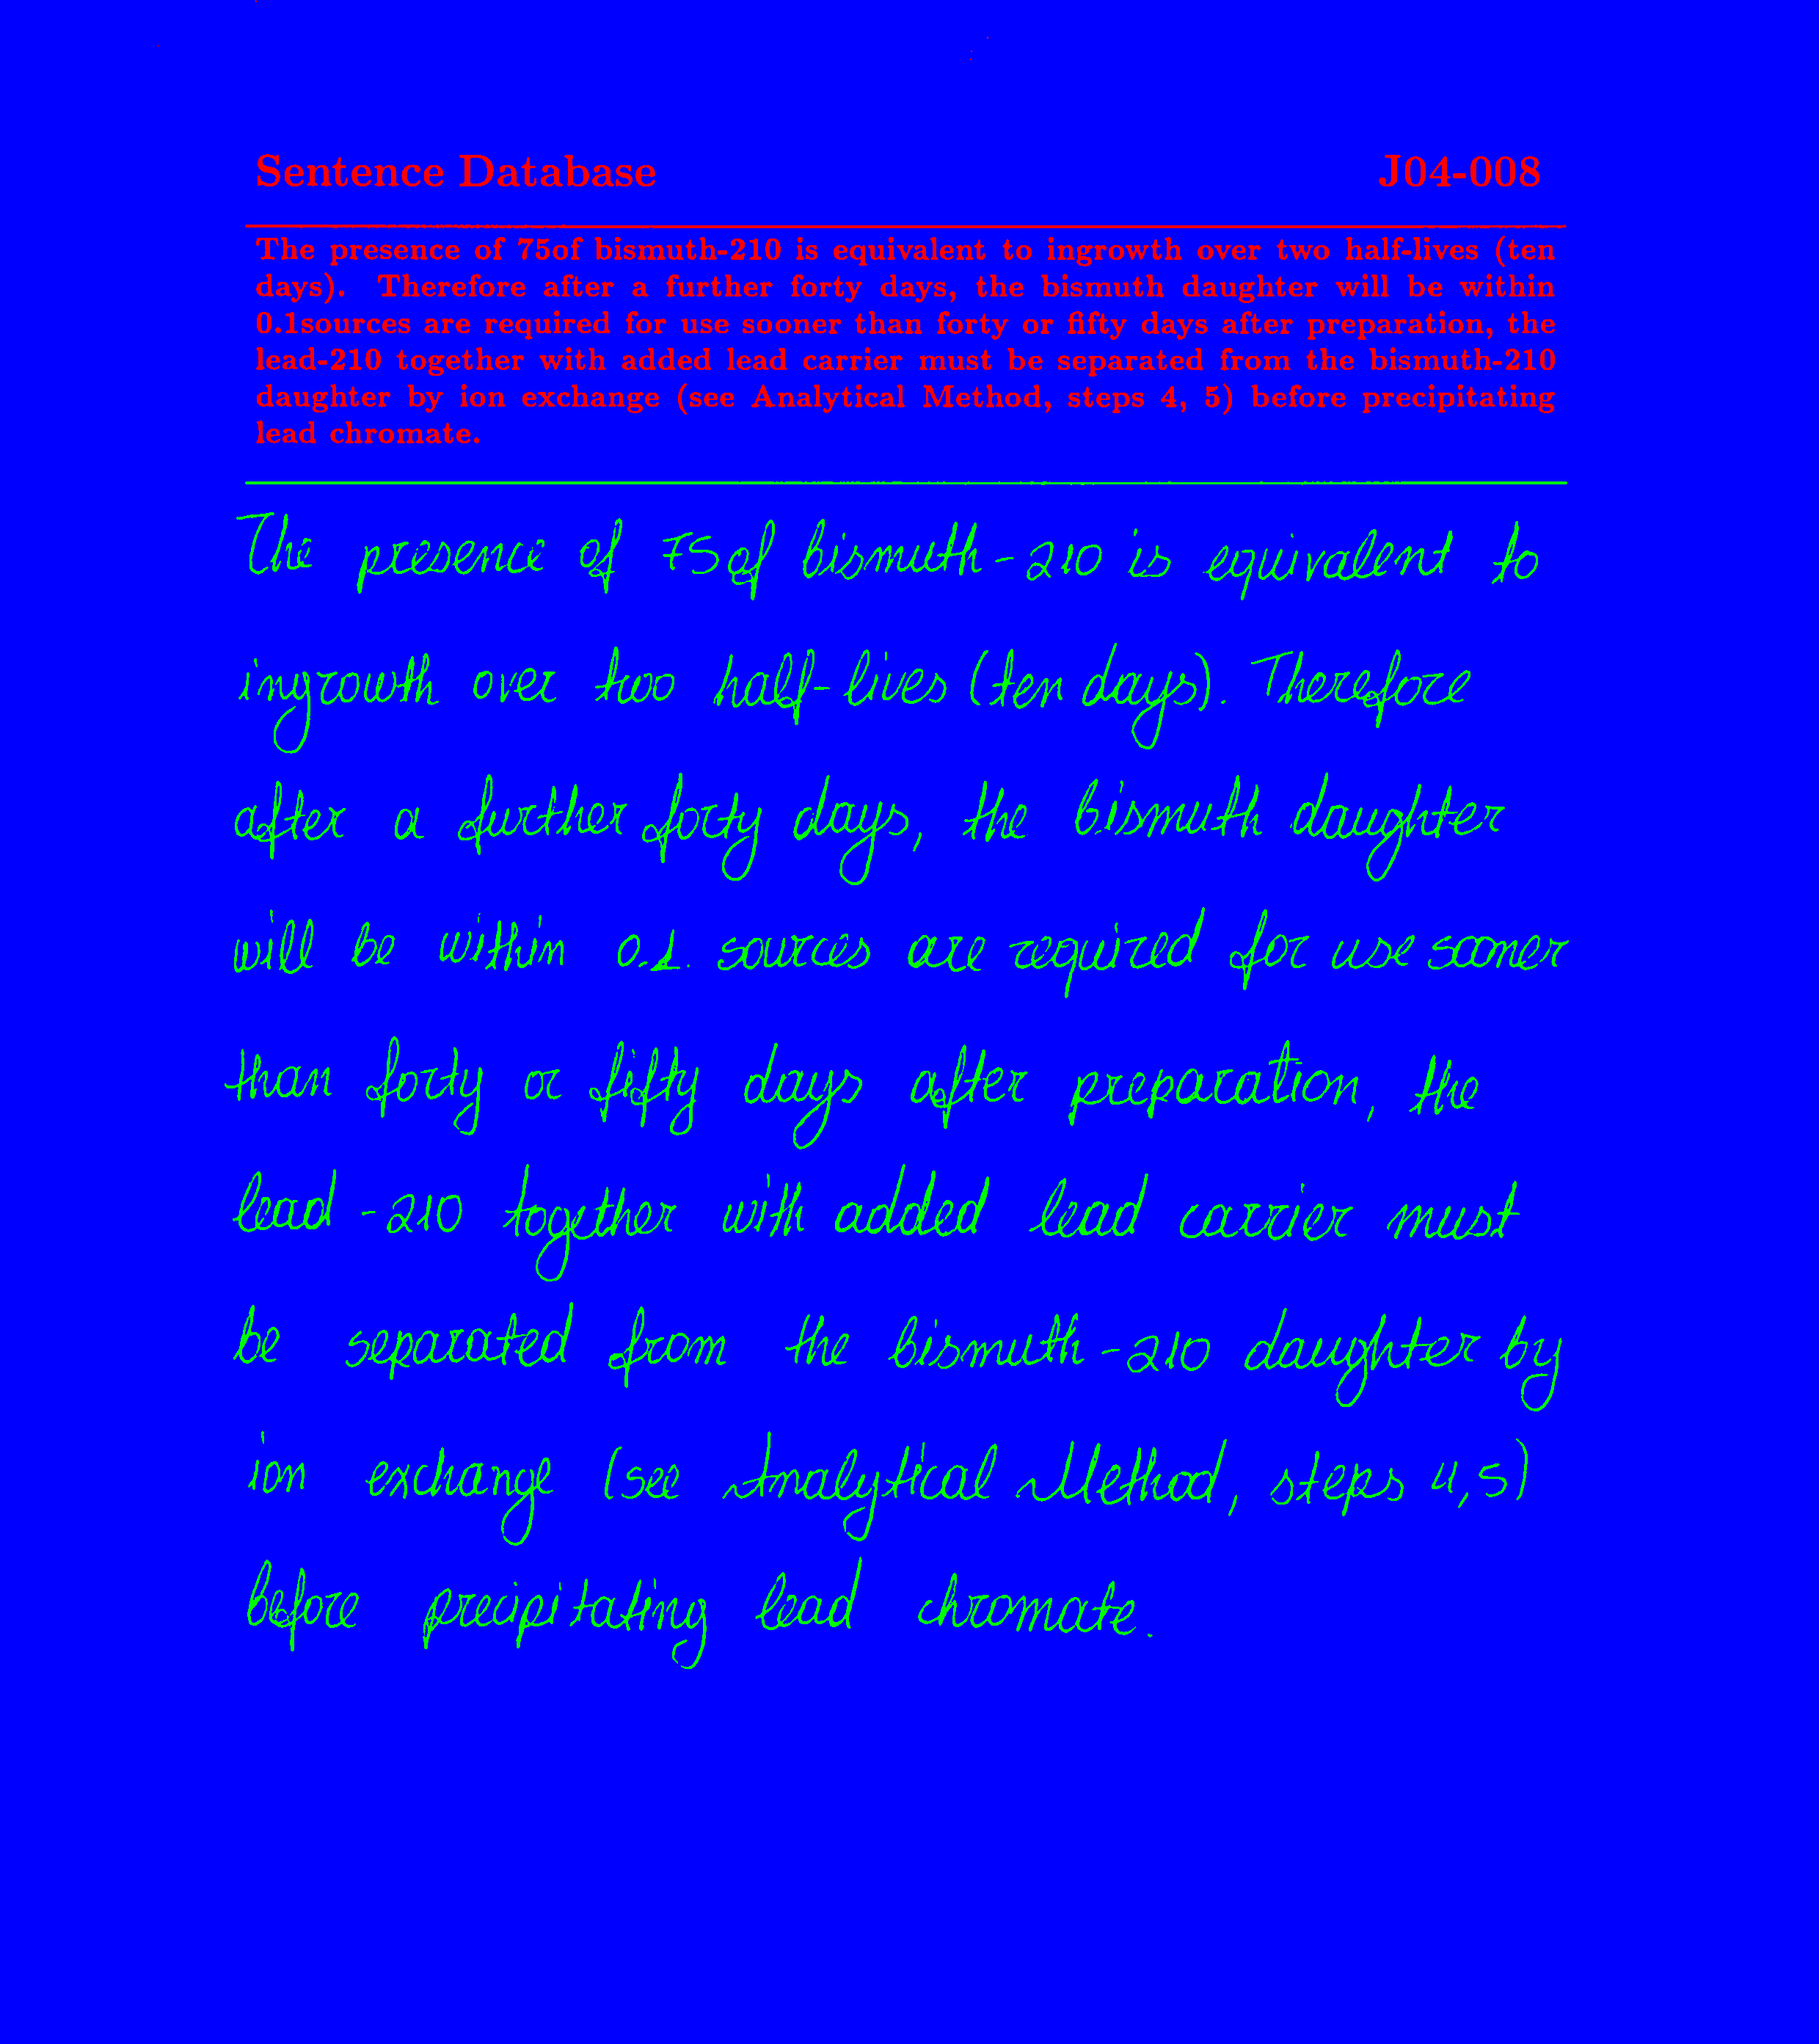 Sentence Database J04-008
The presence of 75of bismuth-210 is equivalent to ingrowth over two half-lives (ten
days). Therefore after a further forty days, the bismuth daughter will be within
0.1sources are required for use sooner than forty or fifty days after preparation, the
lead-210 together with added lead carrier must be separated from the bismuth-210
daughter by ion exchange (see Analytical Method, steps 4, 5) before precipitating
lead chromate.
The presence of 75 of bismuth-210 is equivalent to
ingrowth over two half-lives (ten days). Therefore
after a further forty days, the bismuth daughter
will be within 0.1. sources are required for use sooner
than forty or fifty days after preparation, the
lead-210 together with added lead carrier must
be separated from the bismuth-210 daughter by
ion exchange (see Analytical Method, steps 4,5)
before precipitating lead chromate.